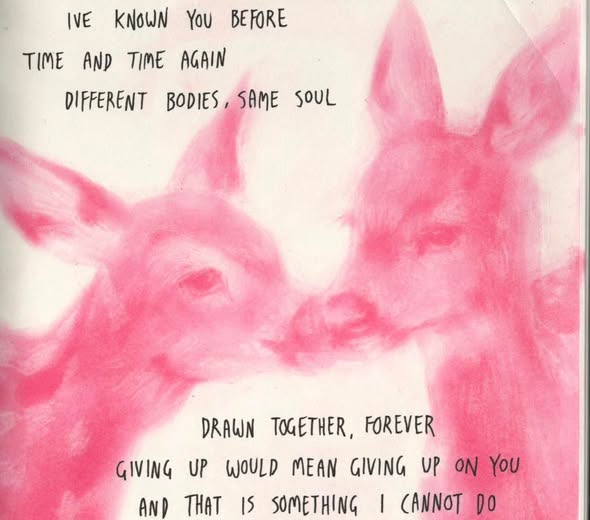 IVE KNOWN YOU BEFORE
TIME AND TIME AGAIN
DIFFERENT BODIES, SAME SOUL
DRAWN TOGETHER, FOREVER
GIVING UP WOULD MEAN GIVING UP ON YOU
AND THAT IS SOMETHING I CANNOT DO